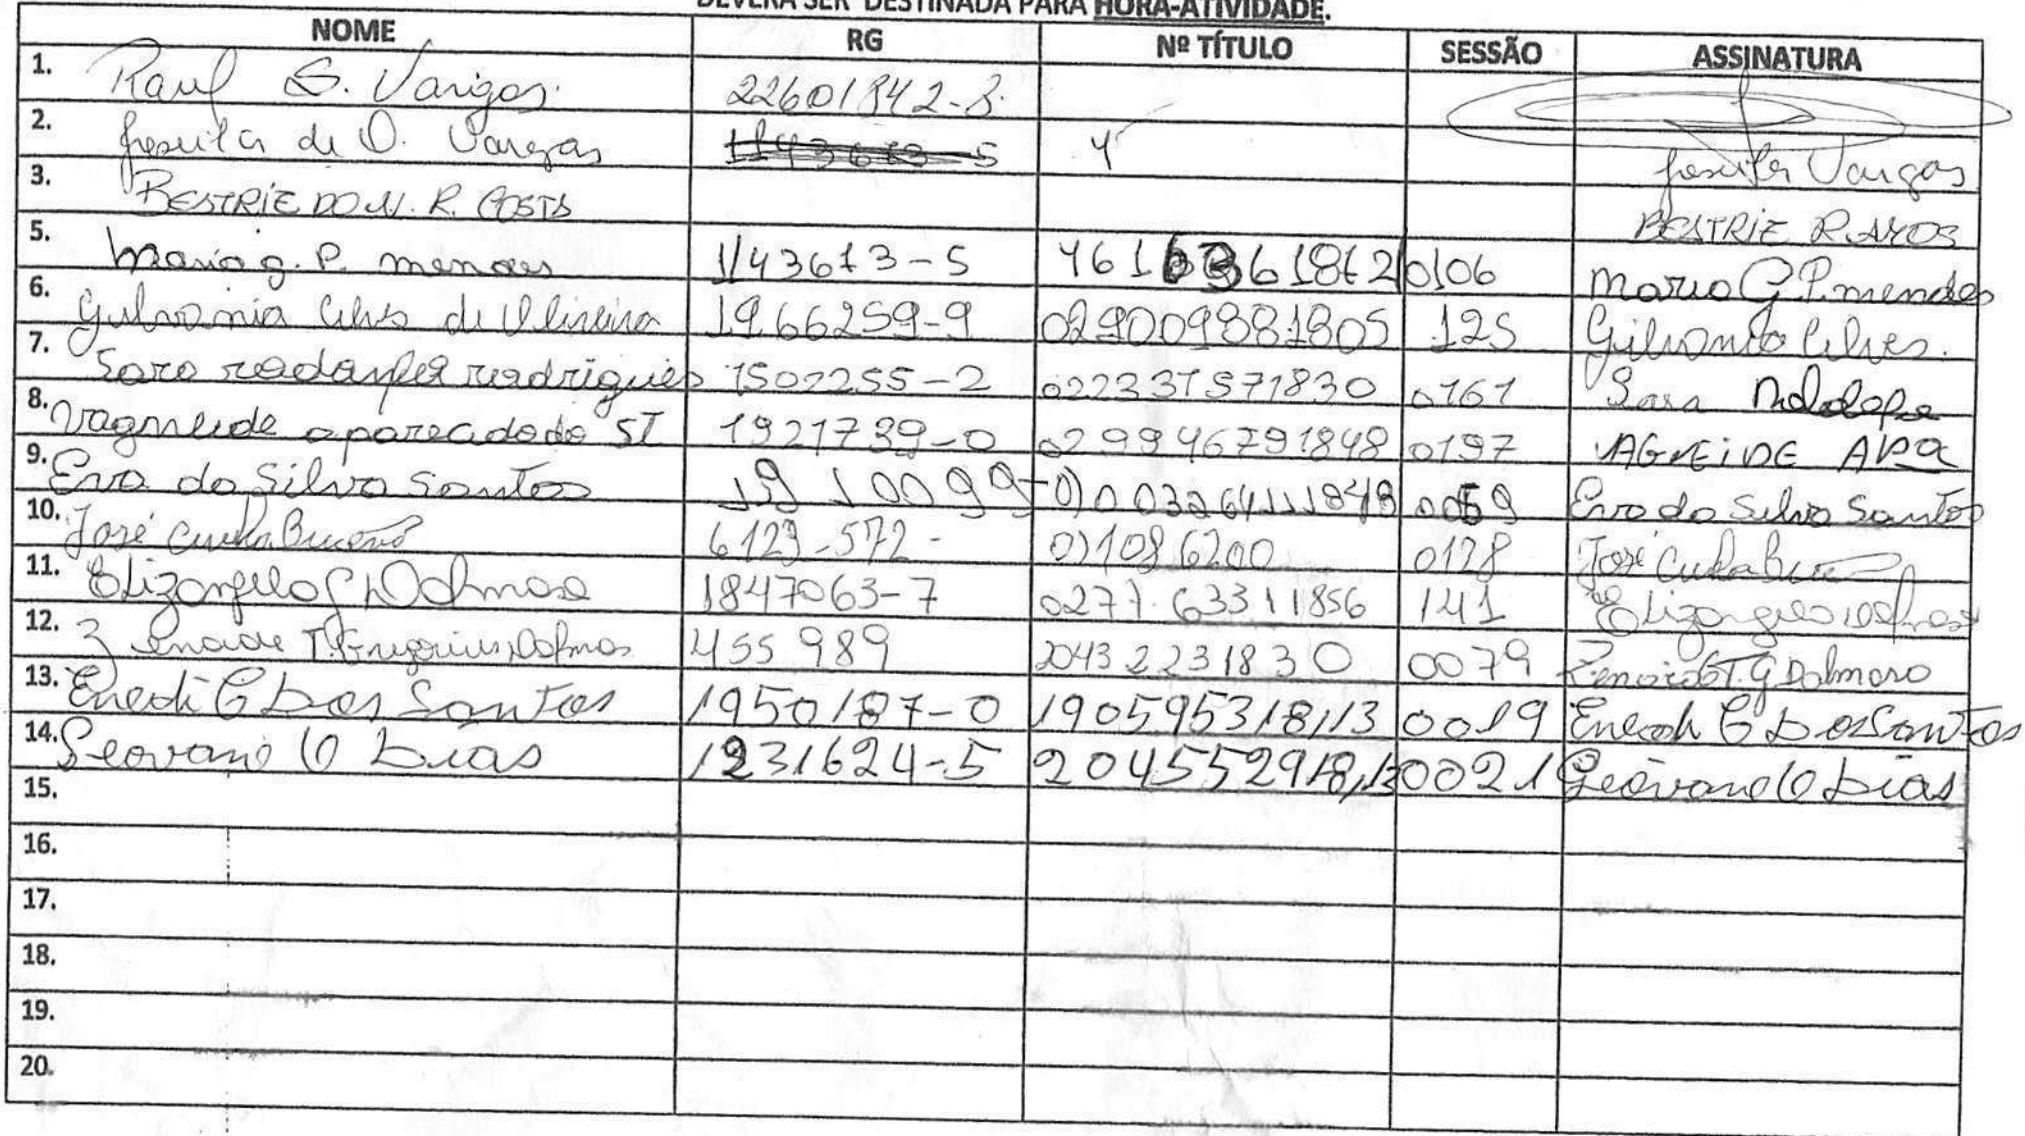 DEVERÁ SER DESTINADA PARA HORA-ATIVIDADE.
NOME RG Nº TÍTULO SESSÃO ASSINATURA
1. Raul S. Vargas 22601842-8
2. de O. Vargas Vargas
3. BEATRIZ DO N. R. COSTA BEATRIZ RAMOS
5. Maria g. P. mendes 1143673-5 0106 Maria G P. mendes
6. Gilvania Alves de Oliveira 1966259-9 029009981805 125 Gilvania Alves.
7. Sara rodrigues 1507255-2 022331571830 0161 Sara
8. Vagneide aparecida da SI 1921739-0 029946791848 0197 VAGNEIDE APª
9. Eva da Silva Santos 1910099-0 003264111848 0059 Eva da Silva Santos
10. José Cunha Bueno 6123-572- 011086200 0128 José Cunha
11. Elizangela Dalmaso 1847063-7 0277.63311856 141 Elizangela
12. Zenaide T. Dalmaso 455 989 20432231830 0079 T. G Dalmaso
13. Enedi C Dos Santos 1950187-0 190595318,13 0019 Enedi C Dos Santos
14. Geovane O Dias 1231624-5 204552918,13 0021 Geovane O Dias
15.
16.
17.
18.
19.
20.